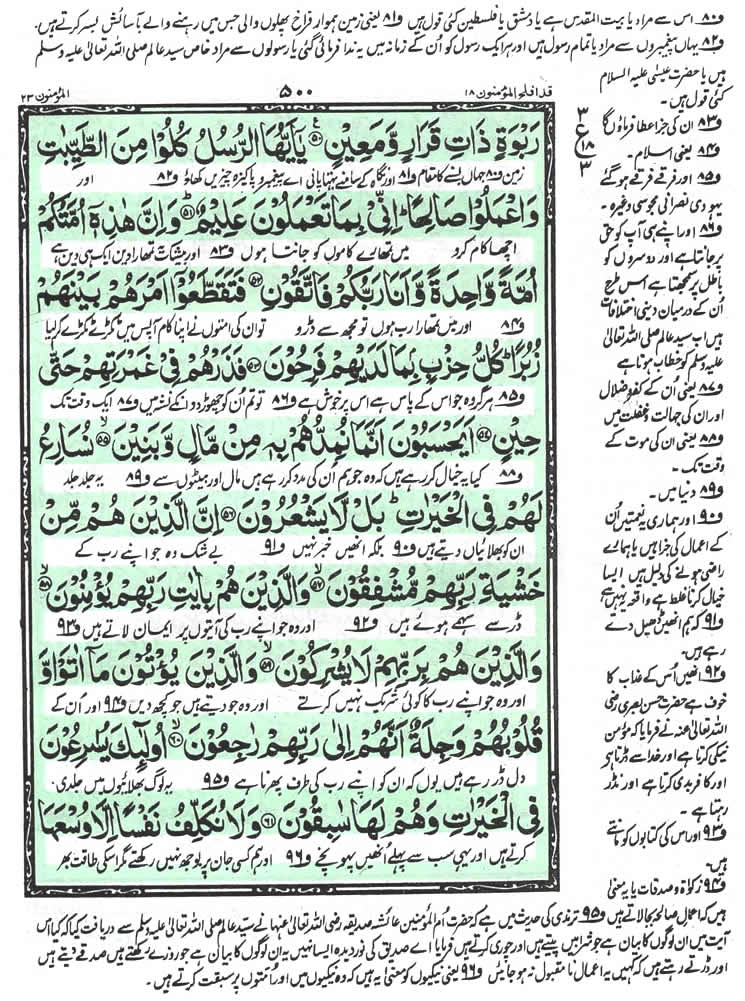 ف۸۰ اس سے مراد یا بیت المقدس ہے یا دمشق یا فلسطین کئی قول ہیں ف۸۱ یعنی زمین ہموار فراخ پھلوں والی جس میں رہنے والے بآسائش بسر کرتے ہیں۔
ف۸۲ یہاں پیغمبروں سے مراد یا تمام رسول ہیں اور ہر ایک رسول کو اُن کے زمانہ میں یہ ندا فرمائی گئی یا رسولوں سے مراد خاص سید عالم صلی اللہ تعالیٰ علیہ وسلم
ہیں یا حضرت عیسیٰ علیہ السلام
کئی قول ہیں۔
ف۸۳ ان کی جزا عطا فرماؤں گا
ف۸۴ یعنی اسلام۔
ف۸۵ اور فرقے فرقے ہو گئے
یہودی نصرانی مجوسی وغیرہ۔
ف۸۶ اور اپنے ہی آپ کو حق
پر جانتا ہے اور دوسروں کو
باطل پر سمجھتا ہے اس طرح
اُن کے درمیان دینی اختلافات
ہیں اب سید عالم صلی اللہ تعالیٰ
علیہ وسلم کو خطاب ہوتا ہے
ف۸۷ یعنی اُن کے کفر و ضلال
اور ان کی جہالت و غفلت میں
ف۸۸ یعنی ان کی موت کے
وقت تک۔
ف۸۹ دنیا میں۔
ف۹۰ اور ہماری یہ نعمتیں اُن
کے اعمال کی جزا ہیں یا ہمارے
راضی ہونے کی دلیل ہیں ایسا
خیال کرنا غلط ہے واقعہ یہ نہیں ہے
ف۹۱ کہ ہم انھیں ڈھیل دے
رہے ہیں۔
ف۹۲ انھیں اُس کے عذاب کا
خوف ہے حضرت حسن بصری رضی
اللہ تعالیٰ عنہ نے فرمایا کہ مؤمن
نیکی کرتا ہے اور خدا سے ڈرتا ہے
اور کافر بدی کرتا ہے اور نڈر
رہتا ہے۔
ف۹۳ اور اس کی کتابوں کو مانتے
ہیں۔
ف۹۴ زکوٰۃ و صدقات یا یہ معنی
قد افلح ۱۸ المؤمنون ۵۰۰ المؤمنون ۲۳
رَبْوَةٍ ذَاتِ قَرَارٍ وَّمَعِيْنٍ ۵۰ يٰۤاَيُّهَا الرُّسُلُ كُلُوْا مِنَ الطَّيِّبٰتِ
زمین ف۸۰ جہاں بسنے کا مقام ف۸۱ اور نگاہ کے سامنے بہتا پانی اے پیغمبرو پاکیزہ چیزیں کھاؤ ف۸۲ اور
وَاعْمَلُوْا صَالِحًا ؕ اِنِّيْ بِمَا تَعْمَلُوْنَ عَلِيْمٌ ۵۱ وَاِنَّ هٰذِهٖۤ اُمَّتُكُمْ
اچھا کام کرو میں تمھارے کاموں کو جانتا ہوں ف۸۳ اور بیشک یہ تمھارا دین ایک ہی دین ہے
اُمَّةً وَّاحِدَةً وَّاَنَا رَبُّكُمْ فَاتَّقُوْنِ ۵۲ فَتَقَطَّعُوْۤا اَمْرَهُمْ بَيْنَهُمْ
ف۸۴ اور میں تمھارا رب ہوں تو مجھ سے ڈرو تو ان کی امتوں نے اپنا کام آپس میں ٹکڑے ٹکڑے کر لیا
زُبُرًا ؕ كُلُّ حِزْبٍۢ بِمَا لَدَيْهِمْ فَرِحُوْنَ ۵۳ فَذَرْهُمْ فِيْ غَمْرَتِهِمْ حَتّٰى
ف۸۵ ہر گروہ جو اس کے پاس ہے اس پر خوش ہے ف۸۶ تو تم اُن کو چھوڑ دو ان کے نشہ میں ف۸۷ ایک وقت تک
حِيْنٍ ۵۴ اَيَحْسَبُوْنَ اَنَّمَا نُمِدُّهُمْ بِهٖ مِنْ مَّالٍ وَّبَنِيْنَ ۵۵ نُسَارِعُ
ف۸۸ کیا یہ خیال کر رہے ہیں کہ وہ جو ہم اُن کی مدد کر رہے ہیں مال اور بیٹوں سے ف۸۹ یہ جلد جلد
لَهُمْ فِي الْخَيْرٰتِ ؕ بَلْ لَّا يَشْعُرُوْنَ ۵۶ اِنَّ الَّذِيْنَ هُمْ مِّنْ
ان کو بھلائیاں دیتے ہیں ف۹۰ بلکہ انھیں خبر نہیں ف۹۱ بے شک وہ جو اپنے رب کے
خَشْيَةِ رَبِّهِمْ مُّشْفِقُوْنَ ۵۷ وَالَّذِيْنَ هُمْ بِاٰيٰتِ رَبِّهِمْ يُؤْمِنُوْنَ ۵۸
ڈر سے سہمے ہوئے ہیں ف۹۲ اور وہ جو اپنے رب کی آیتوں پر ایمان لاتے ہیں ف۹۳
وَالَّذِيْنَ هُمْ بِرَبِّهِمْ لَا يُشْرِكُوْنَ ۵۹ وَالَّذِيْنَ يُؤْتُوْنَ مَاۤ اٰتَوْا وَّ
اور وہ جو اپنے رب کا کوئی شریک نہیں کرتے اور وہ جو دیتے ہیں جو کچھ دیں ف۹۴ اور اُن کے
قُلُوْبُهُمْ وَجِلَةٌ اَنَّهُمْ اِلٰى رَبِّهِمْ رٰجِعُوْنَ ۶۰ اُولٰٓئِكَ يُسٰرِعُوْنَ
دل ڈر رہے ہیں یوں کہ ان کو اپنے رب کی طرف پھرنا ہے ف۹۵ یہ لوگ بھلائیوں میں جلدی
فِي الْخَيْرٰتِ وَهُمْ لَهَا سٰبِقُوْنَ ۶۱ وَلَا نُكَلِّفُ نَفْسًا اِلَّا وُسْعَهَا
کرتے ہیں اور یہی سب سے پہلے انھیں پہونچے ف۹۶ اور ہم کسی جان پر بوجھ نہیں رکھتے مگر اس کی طاقت بھر
۳
ع
۱۸
۳
ہیں کہ اعمال صالحہ بجالاتے ہیں ف۹۵ ترمذی کی حدیث میں ہے کہ حضرت ام المؤمنین عائشہ صدیقہ رضی اللہ تعالیٰ عنہا نے سید عالم صلی اللہ تعالیٰ علیہ وسلم سے دریافت کیا کہ کیا اس
آیت میں ان لوگوں کا بیان ہے جو شرابیں پیتے ہیں اور چوری کرتے ہیں فرمایا اے صدیق کی نور دیدہ ایسا نہیں یہ ان لوگوں کا بیان ہے جو روزے رکھتے ہیں صدقے دیتے ہیں
اور ڈرتے رہتے ہیں کہ کہیں یہ اعمال نامقبول نہ ہو جائیں ف۹۶ یعنی نیکیوں کو معنی یہ ہیں کہ وہ نیکیوں میں اور اُمتوں پر سبقت کرتے ہیں۔